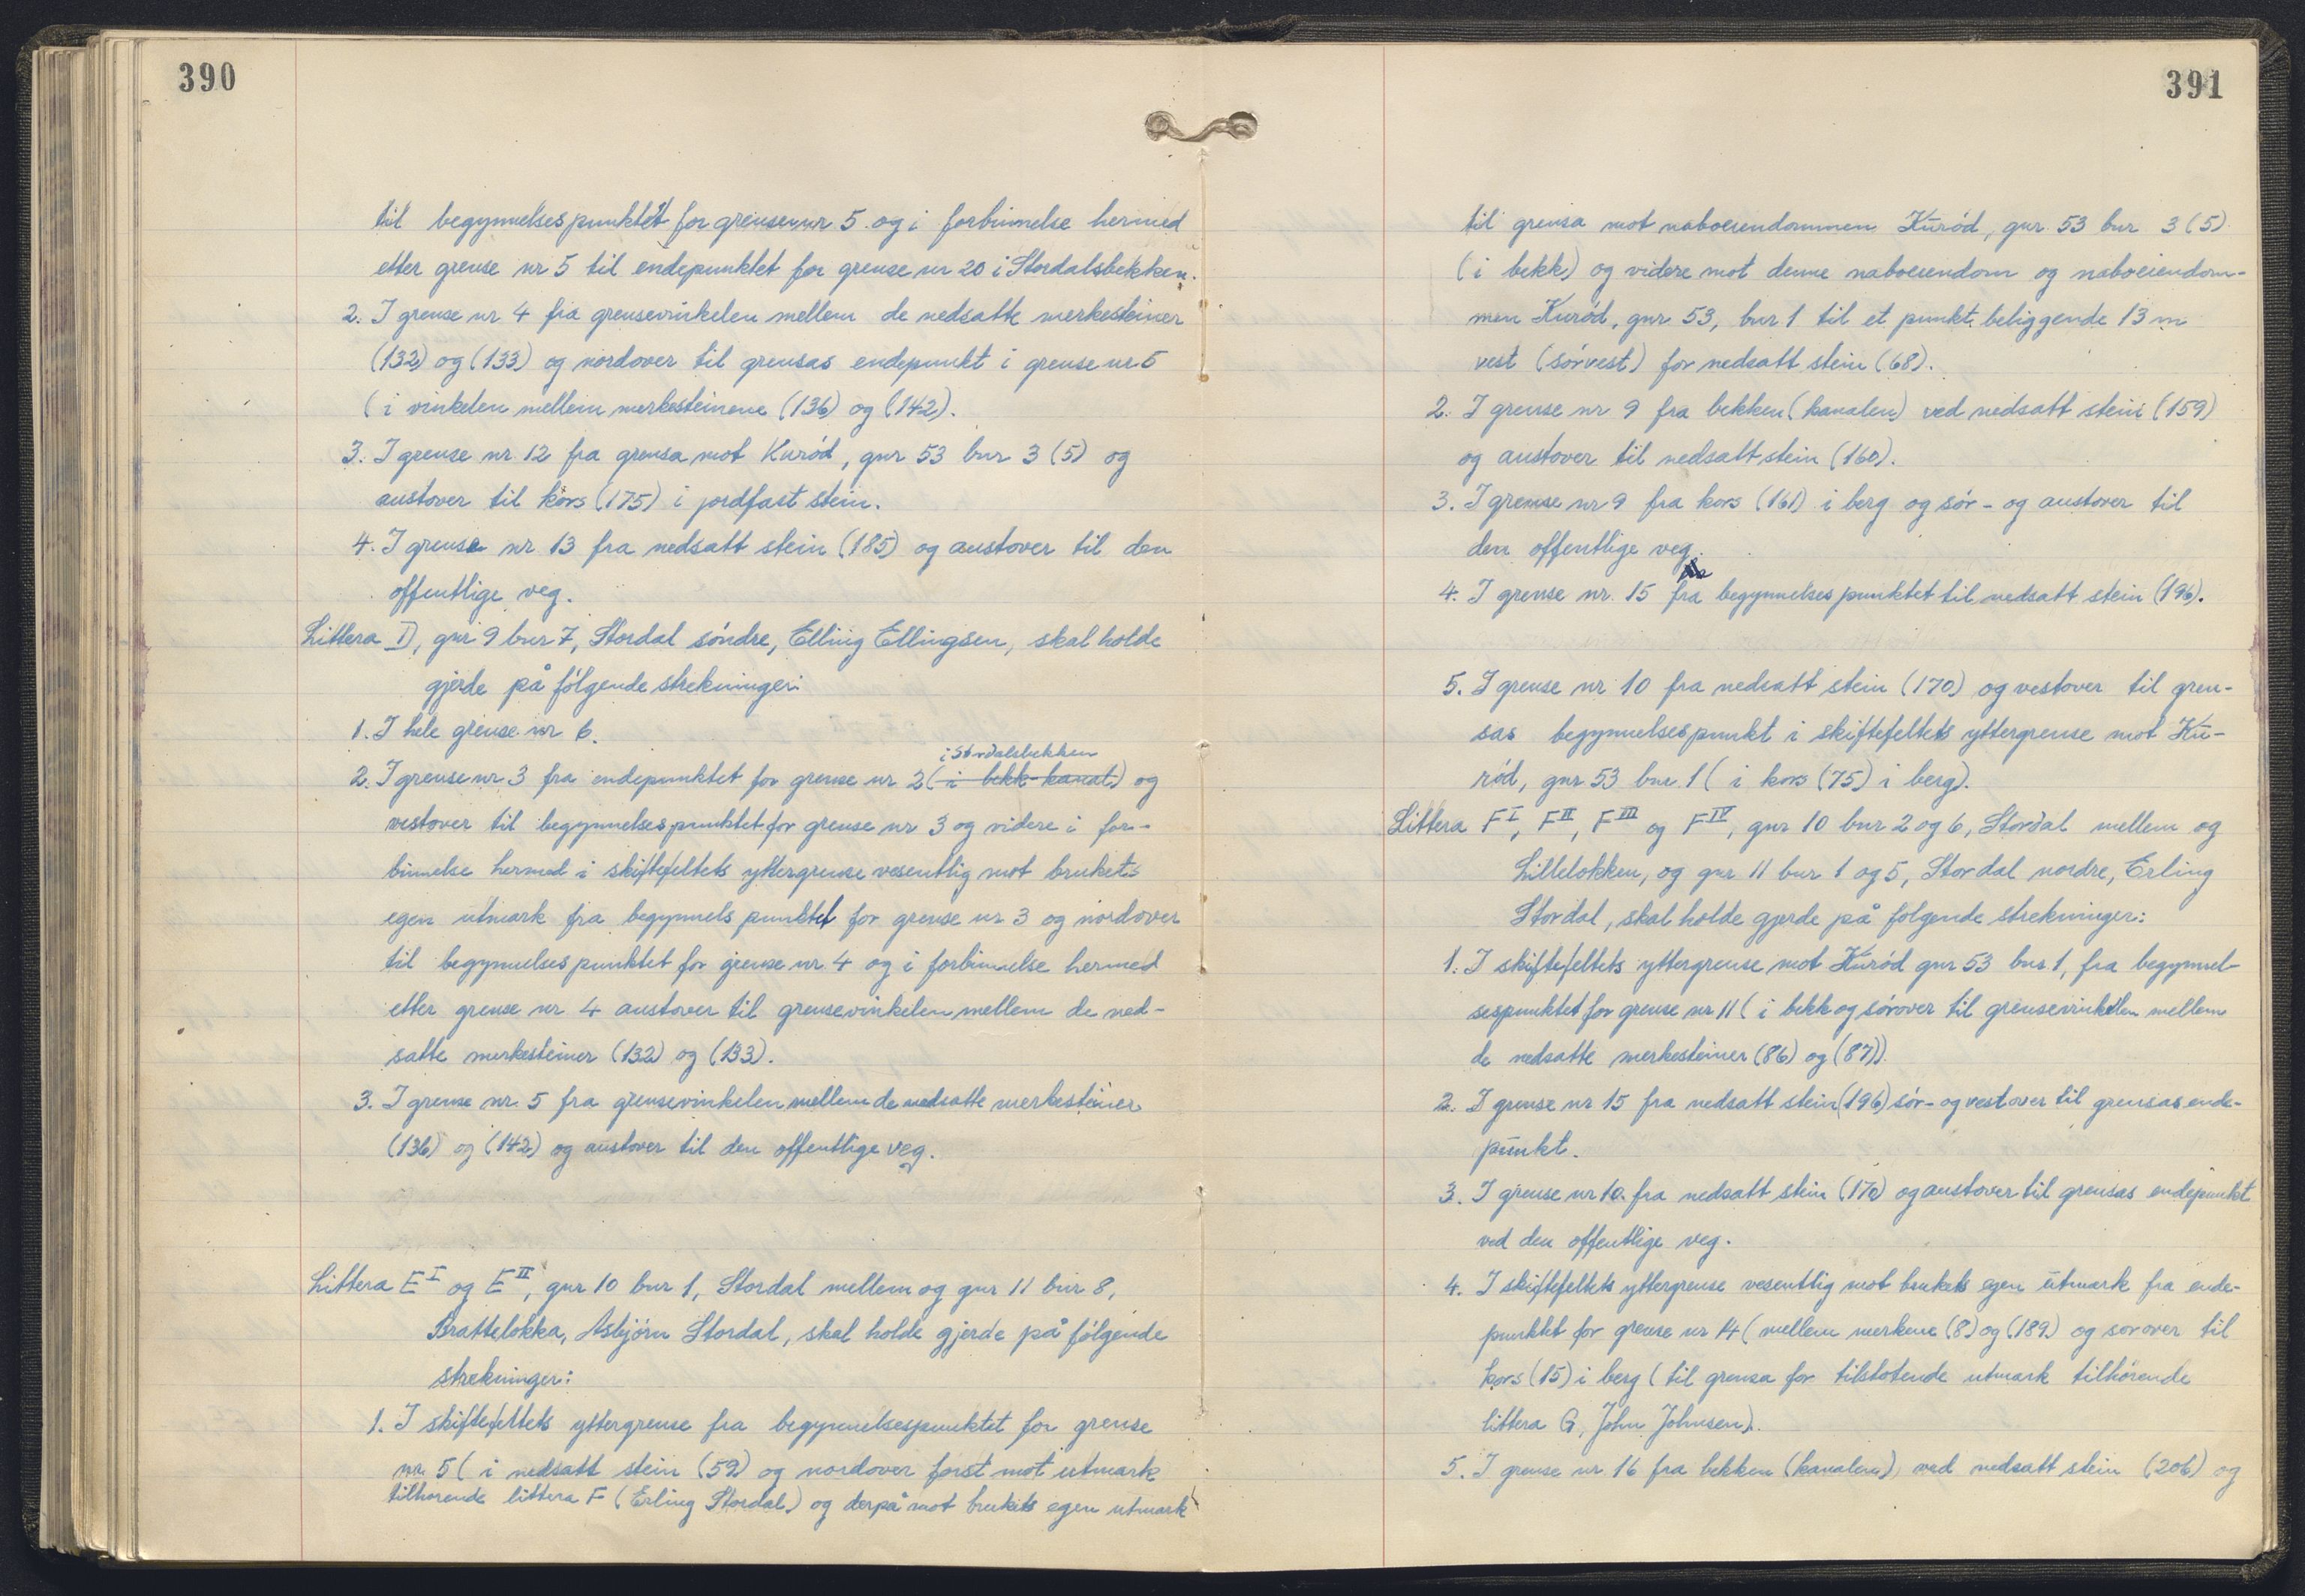 390
til begynnelsespunktet for grense nr 5 og i forbinnelse hermed
etter grense nr 5 til endepunktet for grense nr 20 i Stordalsbekken.
2. I grense nr 4 fra grensevinkelen mellem de nedsatte merkesteiner
(132) og (133) og nordover til grensas endepunkt i grense nr 5
(i vinkelen mellem merkesteinene (136) og (142).
3. I grense nr 12 fra grensa mot Kurød, gnr 53 bnr 3 (5) og
austover til kors (175) i jordfast stein.
4. I grense nr 13 fra nedsatt stein (185) og austover til den
offentlige veg.
Littera D, gnr 9 bnr 7, Stordal søndre, Elling Ellingsen, skal holde
gjerde på følgende strekninger:
1. I hele grense nr 6.
i Stordalsbekken
2. I grense nr 3 fra endepunktet for grense nr 2 (i bekk-kanal) og
vestover til begynnelsespunktet for grense nr 3 og videre i for-
binnelse hermed i skiftefeltets yttergrense vesentlig mot brukets
egen utmark fra begynnels punktet for grense nr 3 og nordover
til begynnelsespunktet for grense nr 4 og i forbinnelse hermed
etter grense nr 4 austover til grensevinkelen mellem de ned-
satte merkesteiner (132) og (133).
3. I grense nr 5 fra grensevinkelen mellem de nedsatte merkesteiner
(136) og (142) og austover til den offentlige veg.
Littera E I og E II, gnr 10 bnr 1, Stordal mellem og gnr 11 bnr 8,
Brattelokka, Asbjørn Stordal, skal holde gjerde på følgende
strekninger:
1. I skiftefeltets yttergrense fra begynnelsespunktet for grense
nr. 5 (i nedsatt stein (59) og nordover først mot utmark
tilhørende littera F (Erling Stordal) og derpå mot brukets egen utmark
391
til grensa mot naboeiendommen Kurød, gnr 53 bnr 3 (5)
(i bekk) og videre mot denne naboeiendom og naboeiendom-
men Kurød, gnr 53, bnr 1 til et punkt beliggende 13 m
vest (sørvest) for nedsatt stein (68).
2. I grense nr 9 fra bekken (kanalen) ved nedsatt stein (159)
og austover til nedsatt stein (160).
3. I grense nr 9 fra kors (161) i berg og sør- og austover til
den offentlige veg.
4. I grense nr. 15 fra begynnelsespunktet til nedsatt stein (196).
5. I grense nr 10 fra nedsatt stein (170) og vestover til gren-
sas begynnelsespunkt i skiftefeltets yttergrense mot Ku-
rød, gnr 53 bnr 1 (i kors (75) i berg).
Littera F I, F II, F III og F IV, gnr 10 bnr 2 og 6, Stordal mellem og
Lillelokken, og gnr 11 bnr 1 og 5, Stordal nordre, Erling
Stordal, skal holde gjerde på følgende strekninger:
1. I skiftefeltets yttergrense mot Kurød gnr 53 bnr 1, fra begynnel-
sespunktet for grense nr 11 (i bekk og sørover til grensevinkelen mellem
de nedsatte merkesteiner (86) og (87)).
2. I grense nr 15 fra nedsatt stein (196) sør- og vestover til grensas ende-
punkt.
3. I grense nr 10 fra nedsatt stein (170) og austover til grensas endepunkt
ved den offentlige veg.
4. I skiftefeltets yttergrense vesentlig mot brukets egen utmark fra ende-
punktet for grense nr 14 (mellem merkene (8) og (189) og sørover til
kors (15) i berg (til grensa for tilstøtende utmark tilhørende
littera G, John Johnsen).
5. I grense nr. 16 fra bekken (kanalen) ved nedsatt stein (206) og